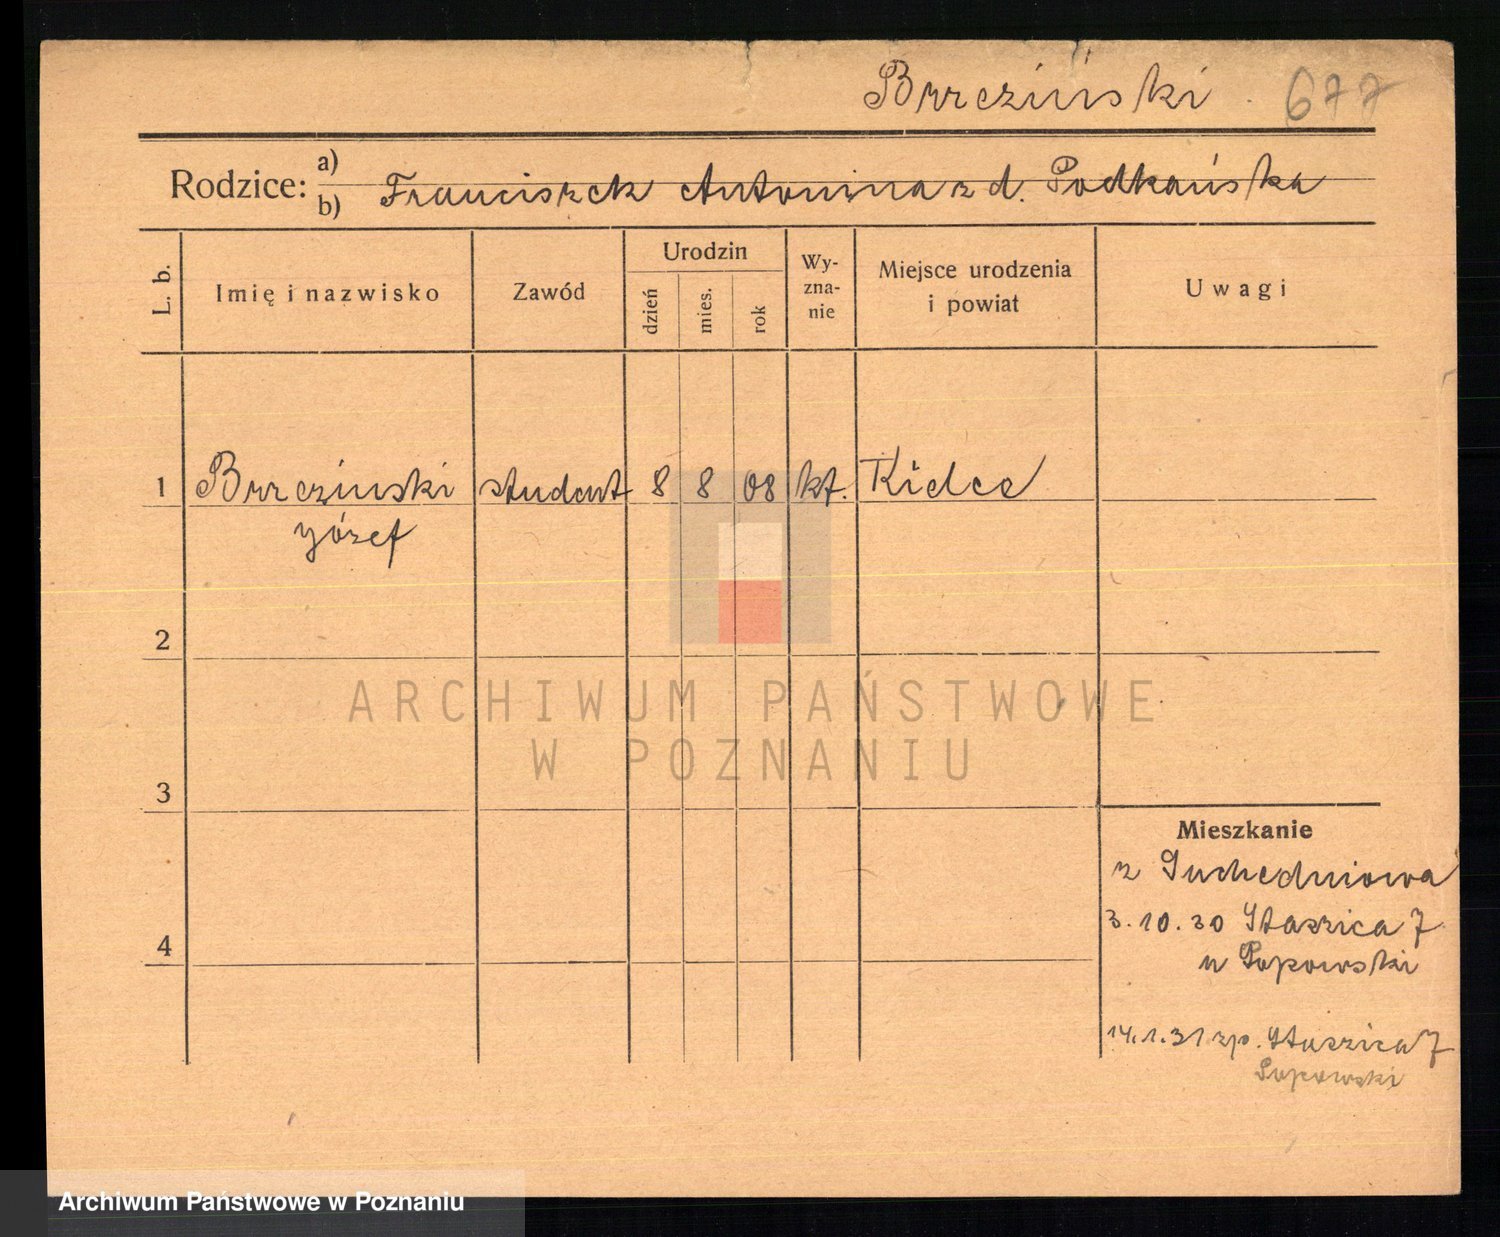 Brzeziński 677
Rodzice: a)
b) Franciszek Antonina z d. Podkańska
L. b. Imię i nazwisko Zawód Urodzin dzień mies. rok Wy-zna-nie Miejsce urodzenia i powiat Uwagi
1 Brzezinski student 8 8 08 kt. Kielce
Józef
2
ARCHIWUM PAŃSTWOWE
W POZNANIU
3
Mieszkanie
z Suchedniowa
3.10.30 Staszica 7
4
u Popowski
14.1.31 zp. Staszica 7
Popowski
Archiwum Państwowe w Poznaniu